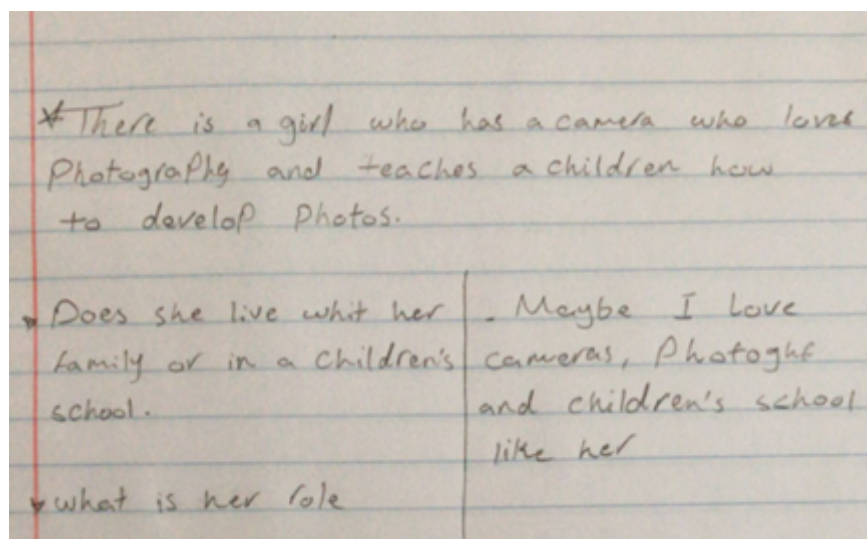 * There is a girl who has a camera who loves
Photography and teaches a children how
to develop Photos.
Does she live whit her
family or in a children's
school.
what is her role
. Maybe I Love
cameras, Photoghf
and children's school
like her